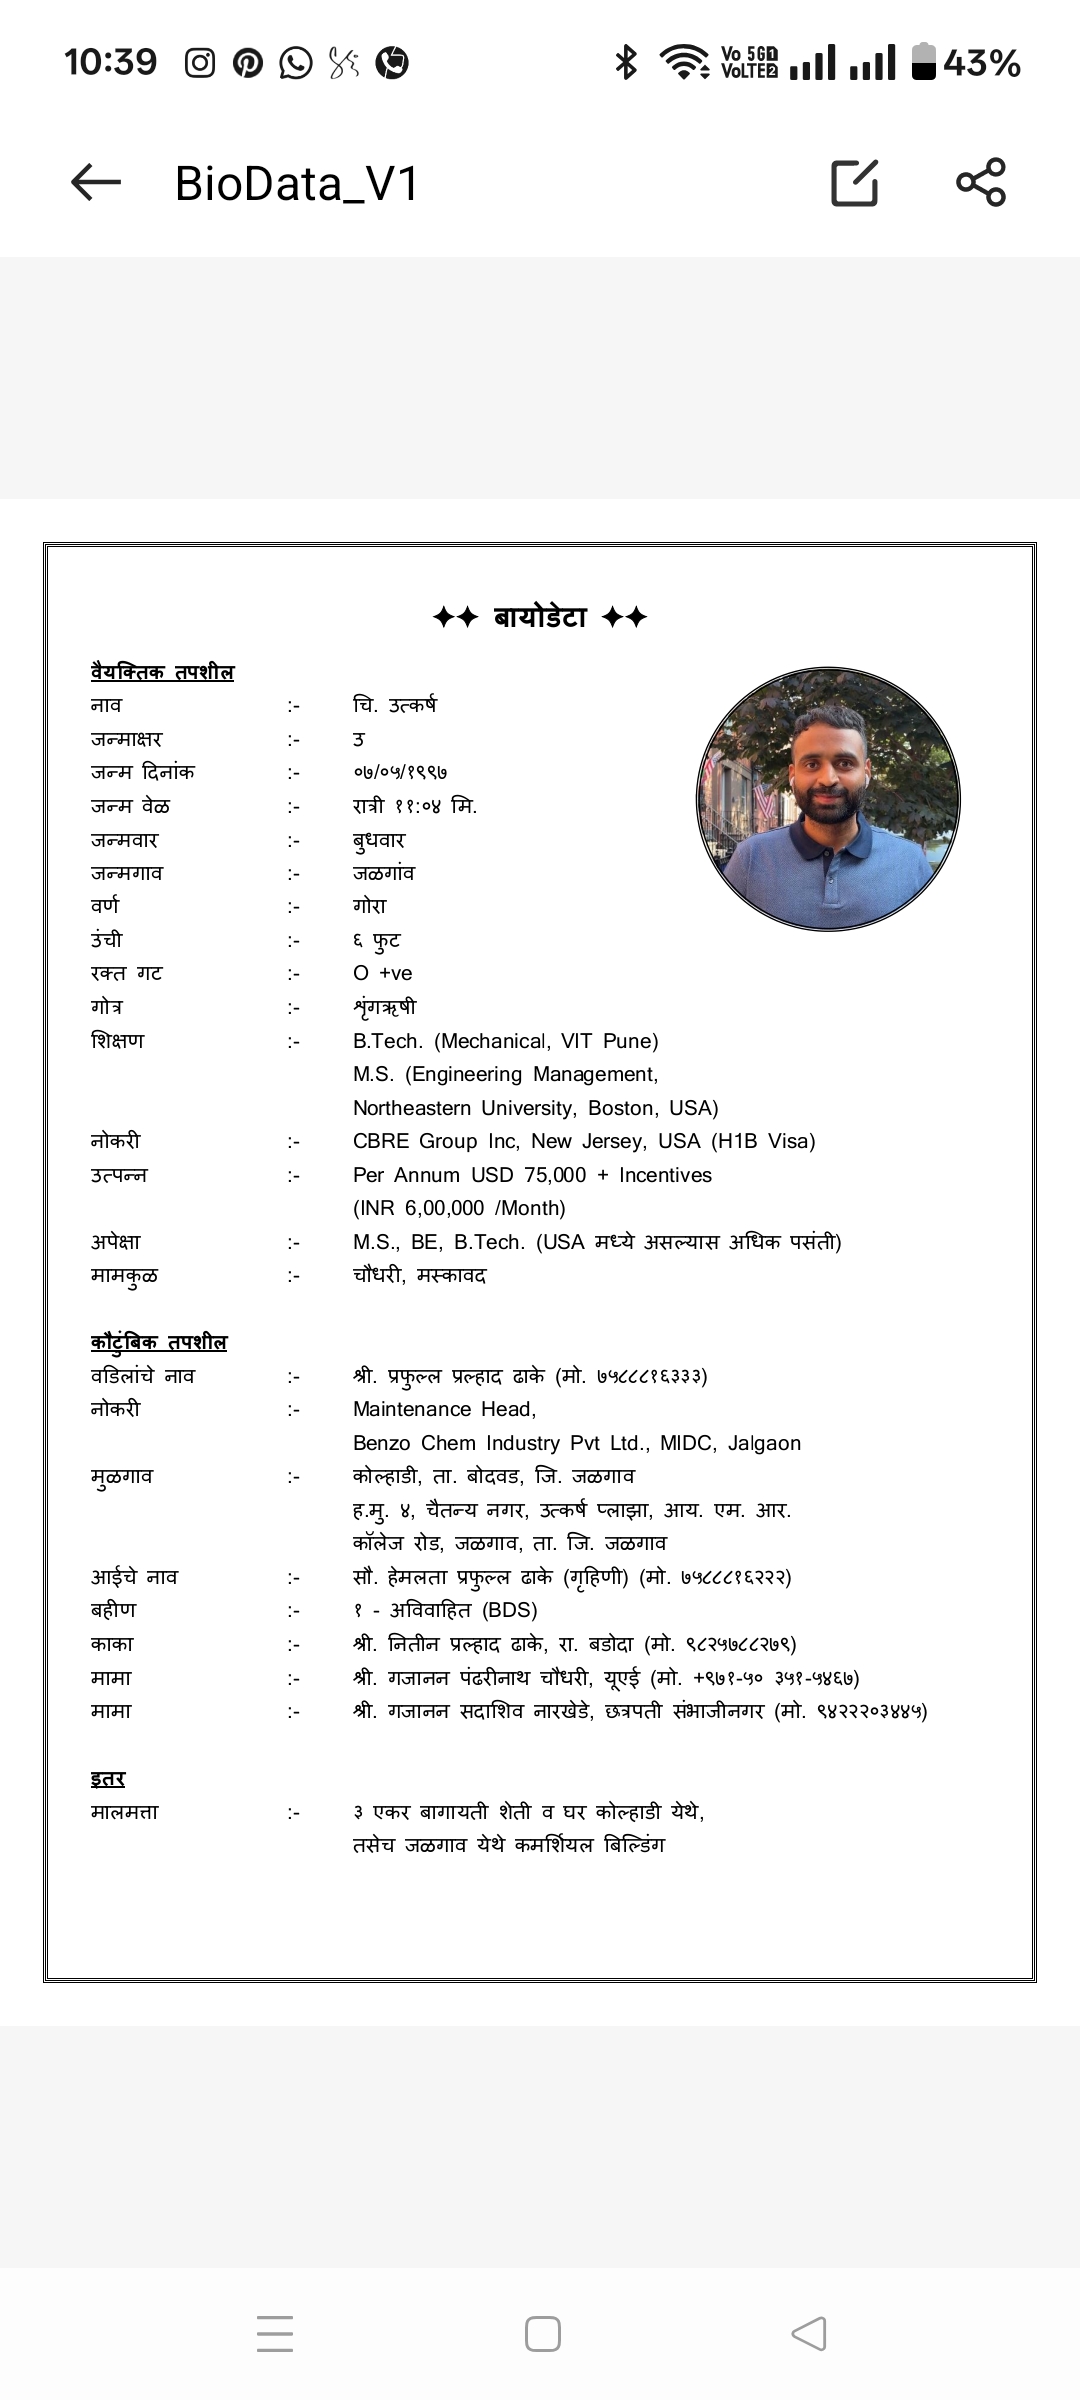 10:39
Vo 5G 1
VoLTE 2
43%
BioData_V1
✦✦ बायोडेटा ✦✦
वैयक्तिक तपशील
नाव :- चि. उत्कर्ष
जन्माक्षर :- उ
जन्म दिनांक :- ०७/०५/१९९७
जन्म वेळ :- रात्री ११:०४ मि.
जन्मवार :- बुधवार
जन्मगाव :- जळगांव
वर्ण :- गोरा
उंची :- ६ फुट
रक्त गट :- O +ve
गोत्र :- शृंगऋषी
शिक्षण :- B.Tech. (Mechanical, VIT Pune)
M.S. (Engineering Management,
Northeastern University, Boston, USA)
नोकरी :- CBRE Group Inc, New Jersey, USA (H1B Visa)
उत्पन्न :- Per Annum USD 75,000 + Incentives
(INR 6,00,000 /Month)
अपेक्षा :- M.S., BE, B.Tech. (USA मध्ये असल्यास अधिक पसंती)
मामकुळ :- चौधरी, मस्कावद
कौटुंबिक तपशील
वडिलांचे नाव :- श्री. प्रफुल्ल प्रल्हाद ढाके (मो. ७५८८८१६३३३)
नोकरी :- Maintenance Head,
Benzo Chem Industry Pvt Ltd., MIDC, Jalgaon
मुळगाव :- कोल्हाडी, ता. बोदवड, जि. जळगाव
ह.मु. ४, चैतन्य नगर, उत्कर्ष प्लाझा, आय. एम. आर.
कॉलेज रोड, जळगाव, ता. जि. जळगाव
आईचे नाव :- सौ. हेमलता प्रफुल्ल ढाके (गृहिणी) (मो. ७५८८८१६२२२)
बहीण :- १ - अविवाहित (BDS)
काका :- श्री. नितीन प्रल्हाद ढाके, रा. बडोदा (मो. ९८२५७८८२७९)
मामा :- श्री. गजानन पंढरीनाथ चौधरी, यूएई (मो. +९७१-५० ३५१-५४६७)
मामा :- श्री. गजानन सदाशिव नारखेडे, छत्रपती संभाजीनगर (मो. ९४२२२०३४४५)
इतर
मालमत्ता :- ३ एकर बागायती शेती व घर कोल्हाडी येथे,
तसेच जळगाव येथे कमर्शियल बिल्डिंग